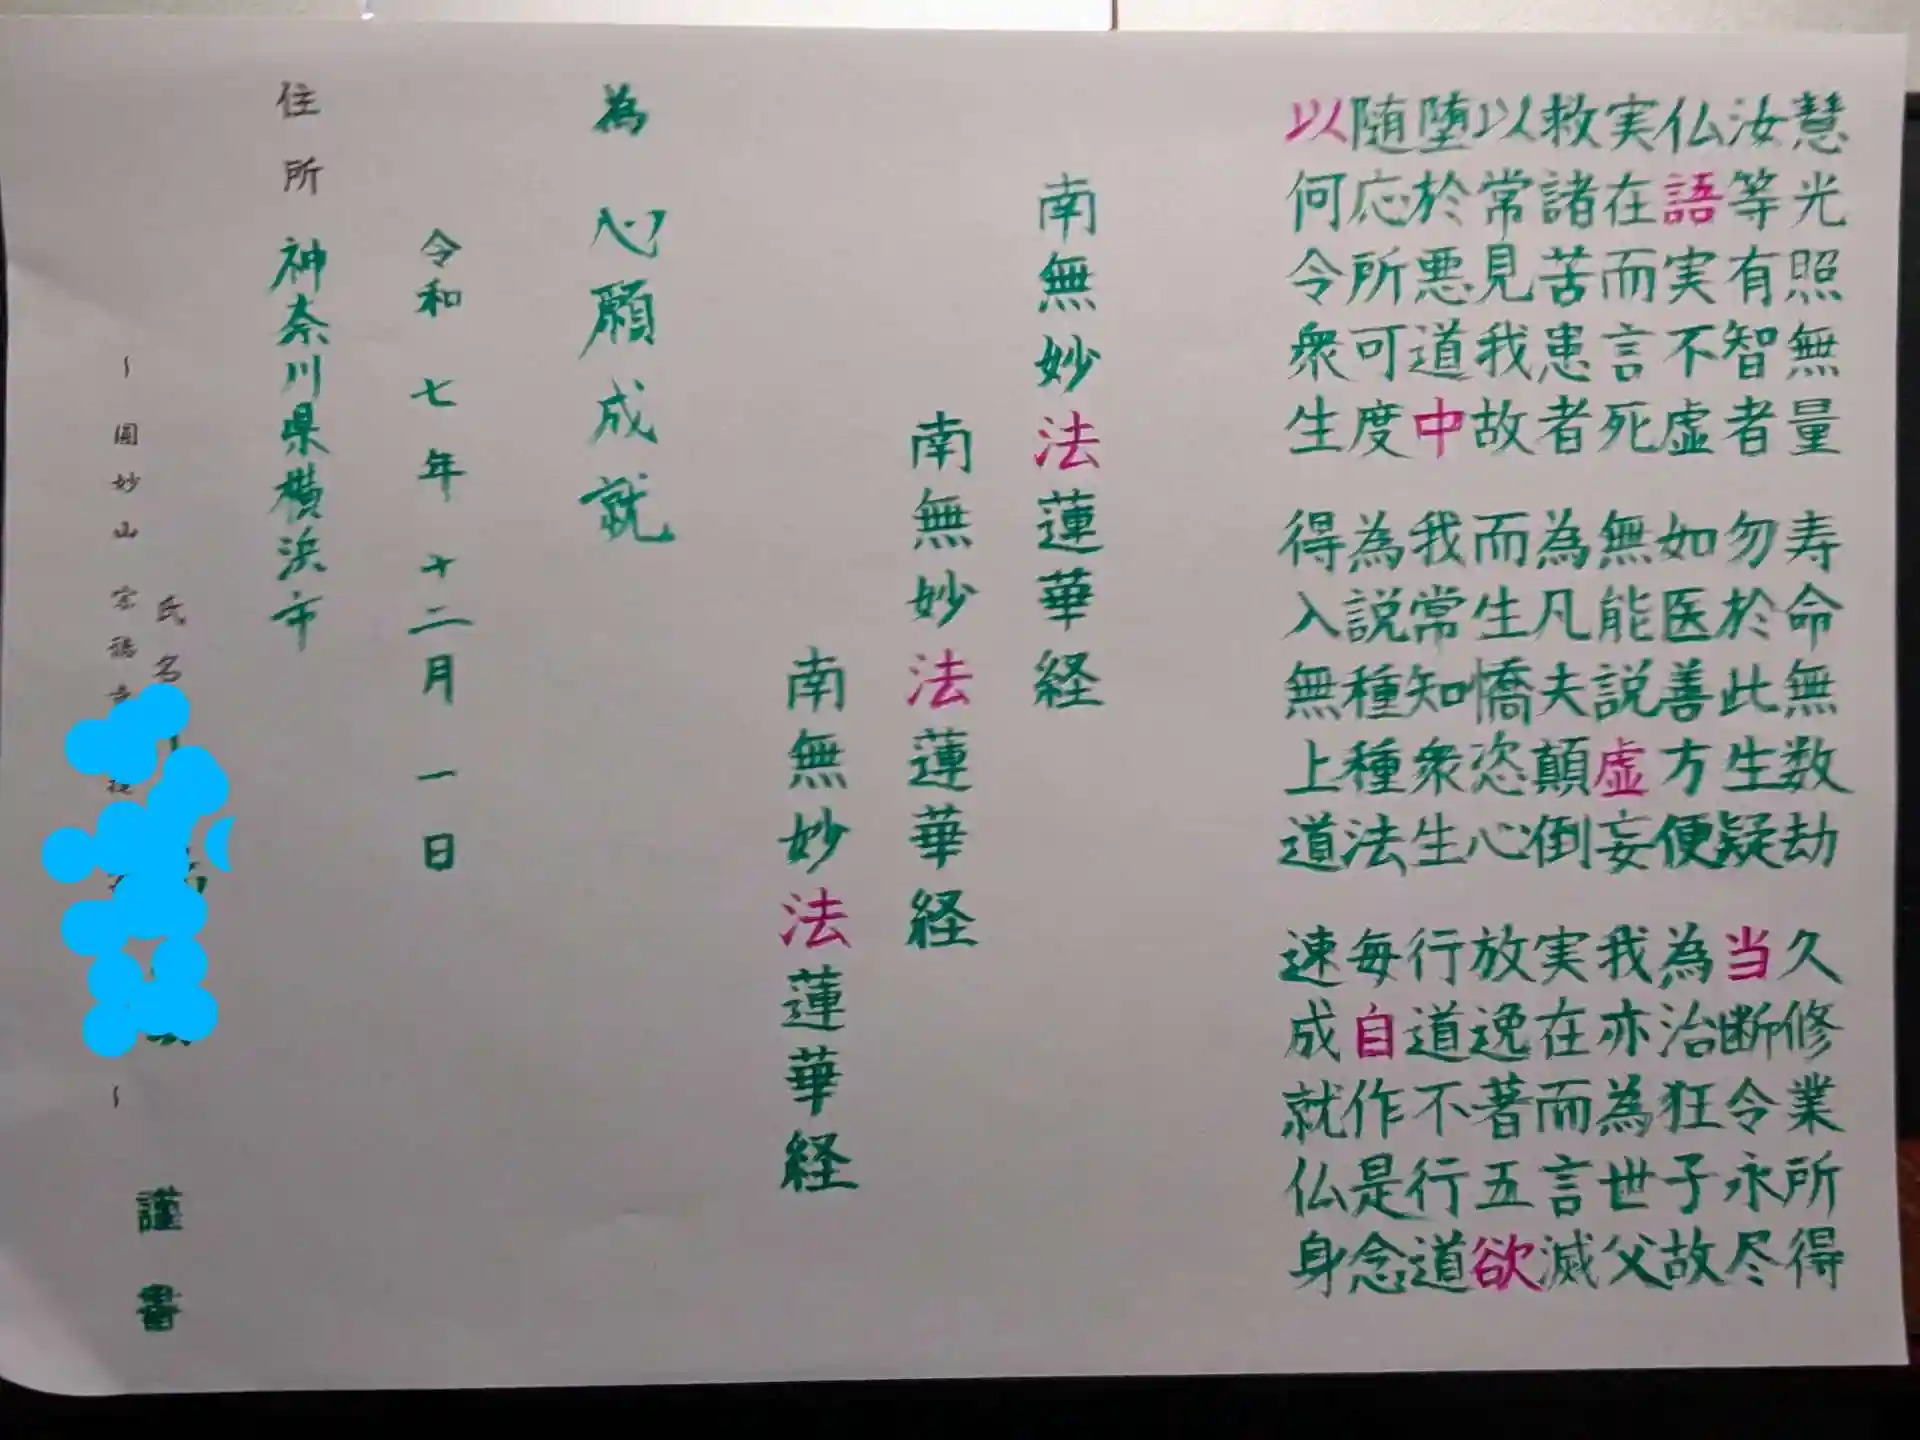 慧光照無量 寿命無数劫 久修業所得
汝等有智者 勿於此生疑 当断令永尽
仏語実不虚 如医善方便 為治狂子故
実在而言死 無能説虚妄 我亦為世父
救諸苦患者 為凡夫顛倒 実在而言滅
以常見我故 而生憍恣心 放逸著五欲
堕於悪道中 我常知衆生 行道不行道
随応所可度 為説種種法 毎自作是念
以何令衆生 得入無上道 速成就仏身
南無妙法蓮華経
南無妙法蓮華経
南無妙法蓮華経
為 心願成就
令和 七年 十二月 一日
住所 神奈川県横浜市
氏名 謹書
〜圓妙山 宗 〜